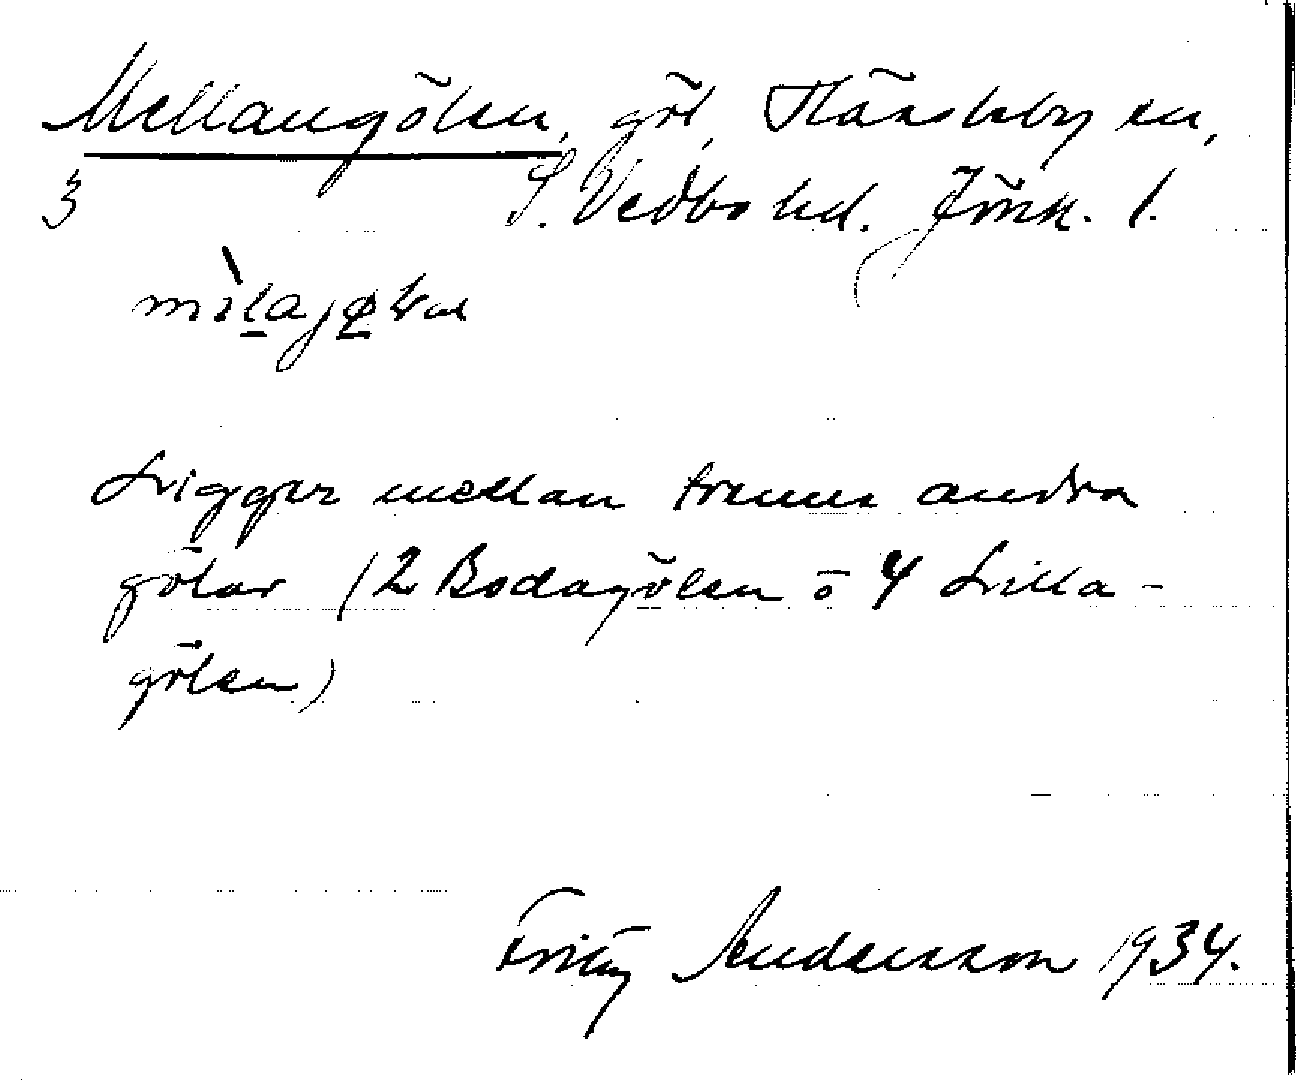 Mellangölen, göl, Hässleby sn,
3 S. Vedbo hd. Jönk. l.
Ligger mellan tvenne andra
gölar (2 Bodagölen o 4 Lilla-
gölen)
Fritz Andersson 1934.